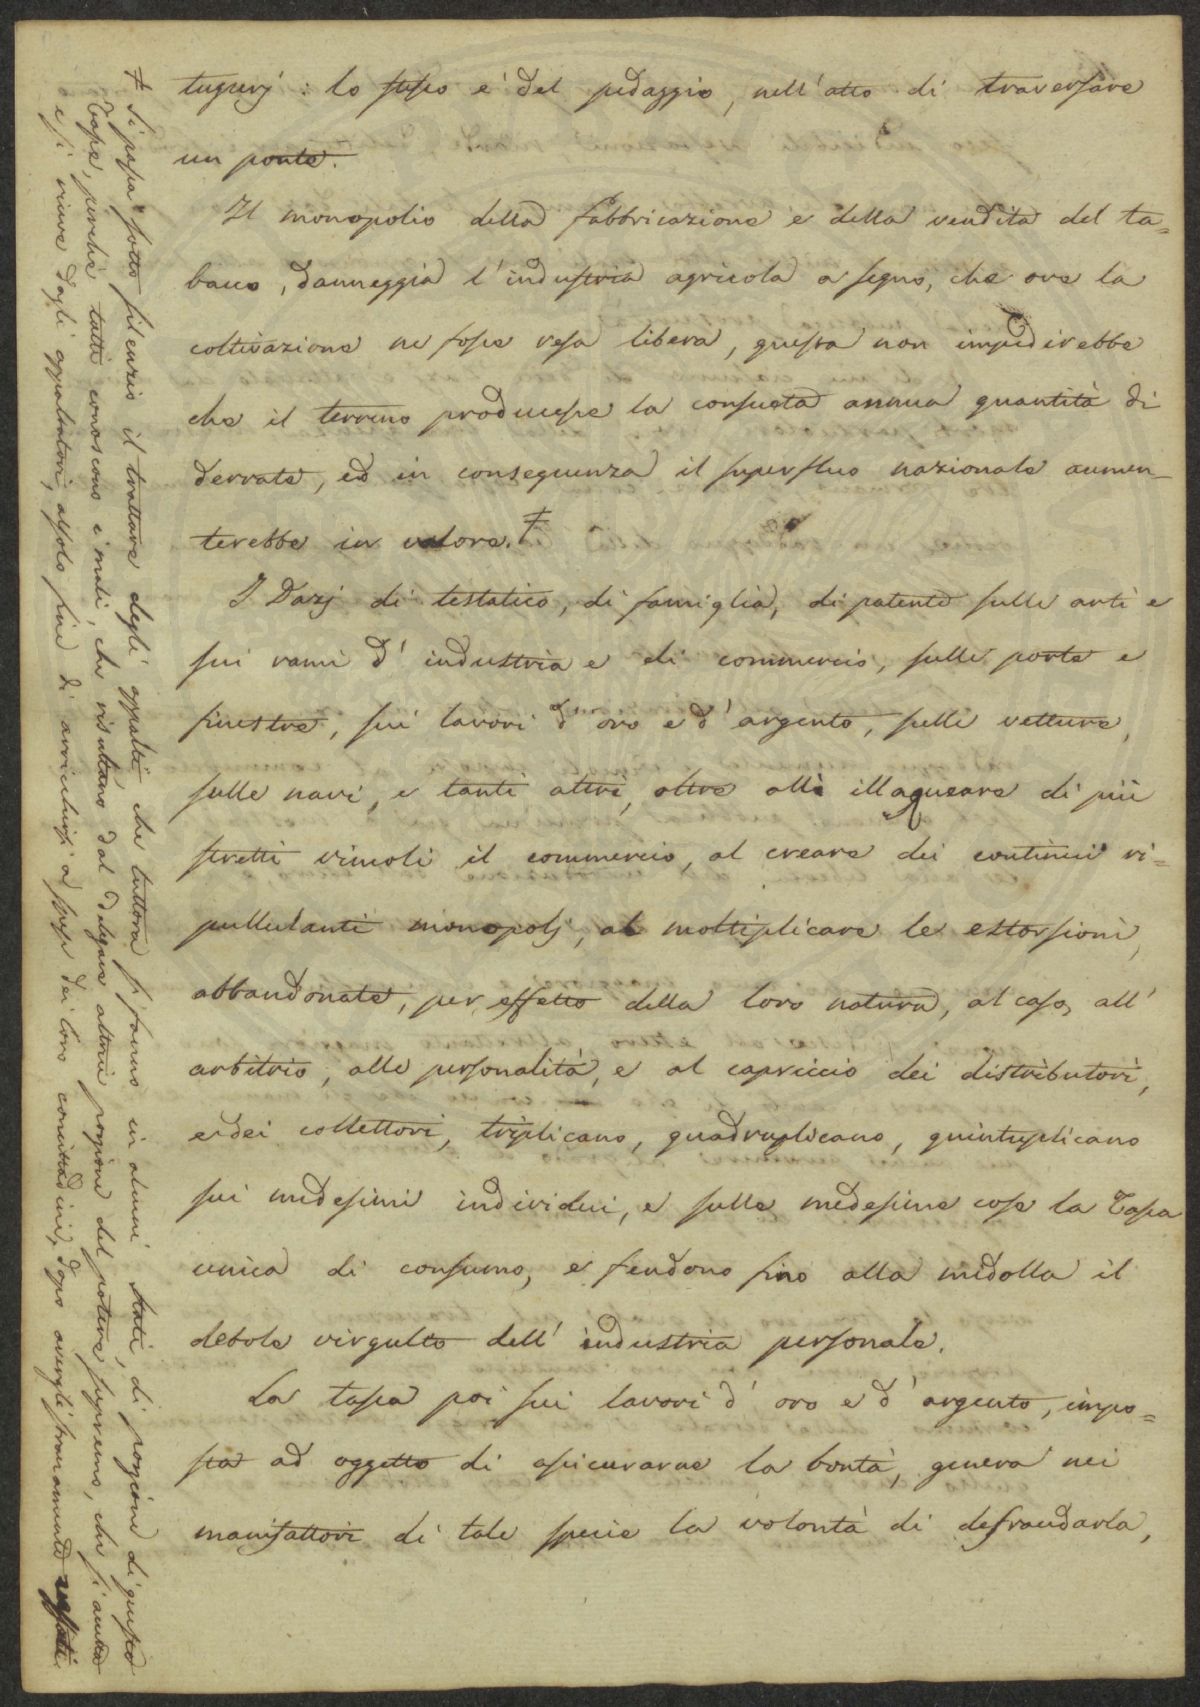 tugurj : lo stesso e' del pedaggio, nell'atto di traversare
un ponte.
Il monopolio della fabbricazione e della vendita del ta=
bacco, danneggia l'industria agricola a segno, che ove la
coltivazione ne fosse resa libera, questa non impedirebbe
che il terreno producesse la consueta annua quantità di
derrate, ed in conseguenza il superfluo nazionale aumen=
terebbe in valore.‡
I Dazj di testatico, di famiglia, di patente sulle arti e
sui rami d'industria e di commercio, sulle porte e
finestre, sui lavori d'oro e d'argento, sulle vetture,
sulle navi, e tanti altri, oltre allo illaqueare di più
stretti vincoli il commercio, al creare dei continui ri=
pullulanti monopolj, al moltiplicare le estorsioni,
abbandonate, per effetto della loro natura, al caso, all'
arbitrio, alle personalità, e al capriccio dei distributori,
e dei collettori, triplicano, quadruplicano, quintuplicano
sui medesimi individui, e sulle medesime cose la Tassa
unica di consumo, e fendono fino alla midolla il
debole virgulto dell'industria personale.
La tassa poi sui lavori d'oro e d'argento, impo=
sta ad oggetto di assicurarne la bontà, genera nei
manifattori di tale specie la volontà di defraudarla,
‡ Si passa sotto silenzio il trattare degli appalti che tuttora si fanno in alcuni stati, di porzione di queste
Tasse, perchè tutti conoscono i mali, che risultano dal delegare altrui porzione del potere supremo, che si
e si riceve dagli appaltatori, al solo fine di arricchirsi a spese dei loro concittadini, dopo averli